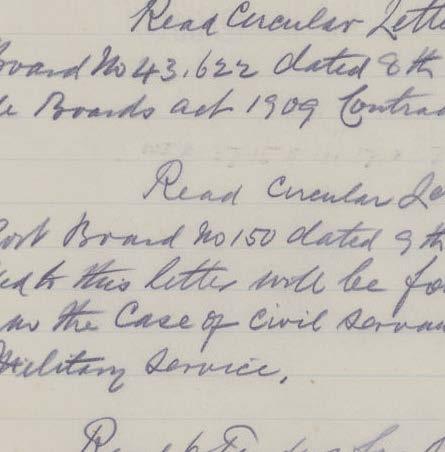 Read Circular Lette
Board No 43.622 dated 8th
de Boards act 1909 Contrac
Read Circular Le
ort Board No 150 dated 9th
ed to this letter will be fo
in the Case of Civil Servan
Military Service.
Read